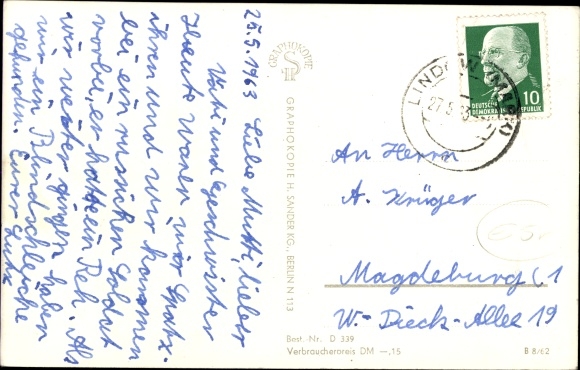 25.5.1963 Liebe Mutti, lieber
Vati und Geschwister
Heute waren wir
ihren und wir kommen
bei ein russischen Soldat
vorbei, er hatte ein Reh. Als
wir weiter gingen haben
wir ein Blindschleiche
gefunden. Eurer Lutz
GRAPHOKOPIE
GRAPHOKOPIE H. SANDER KG., BERLIN N 113
LINDOW (MARK)
27.5.63
DEUTSCHE
DEMOKRATISCHE REPUBLIK
10
An Herrn
A. Krüger
Magdeburg C 1
W.-Pieck-Allee 19
Best.-Nr. D 339
Verbraucherpreis DM —,15
B 8/62